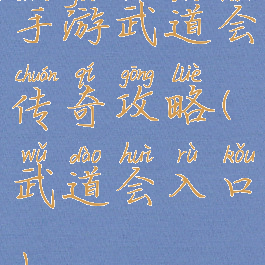 手游武道会
chuán qí gōng lüè
传奇攻略(
wǔ dào huì rù kǒu
武道会入口
)